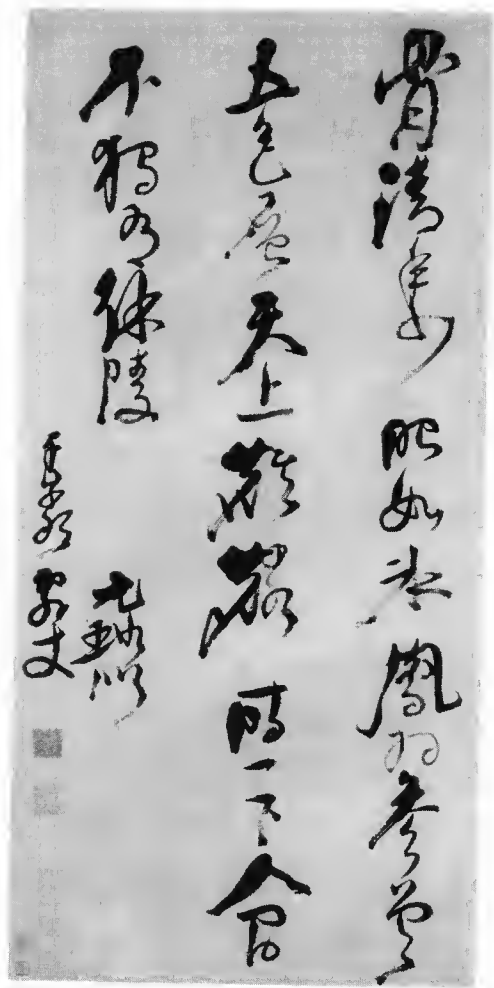 骨清年少眼如冰鳳羽參差
五色層天上麒麟時一下人間
不獨有徐陵